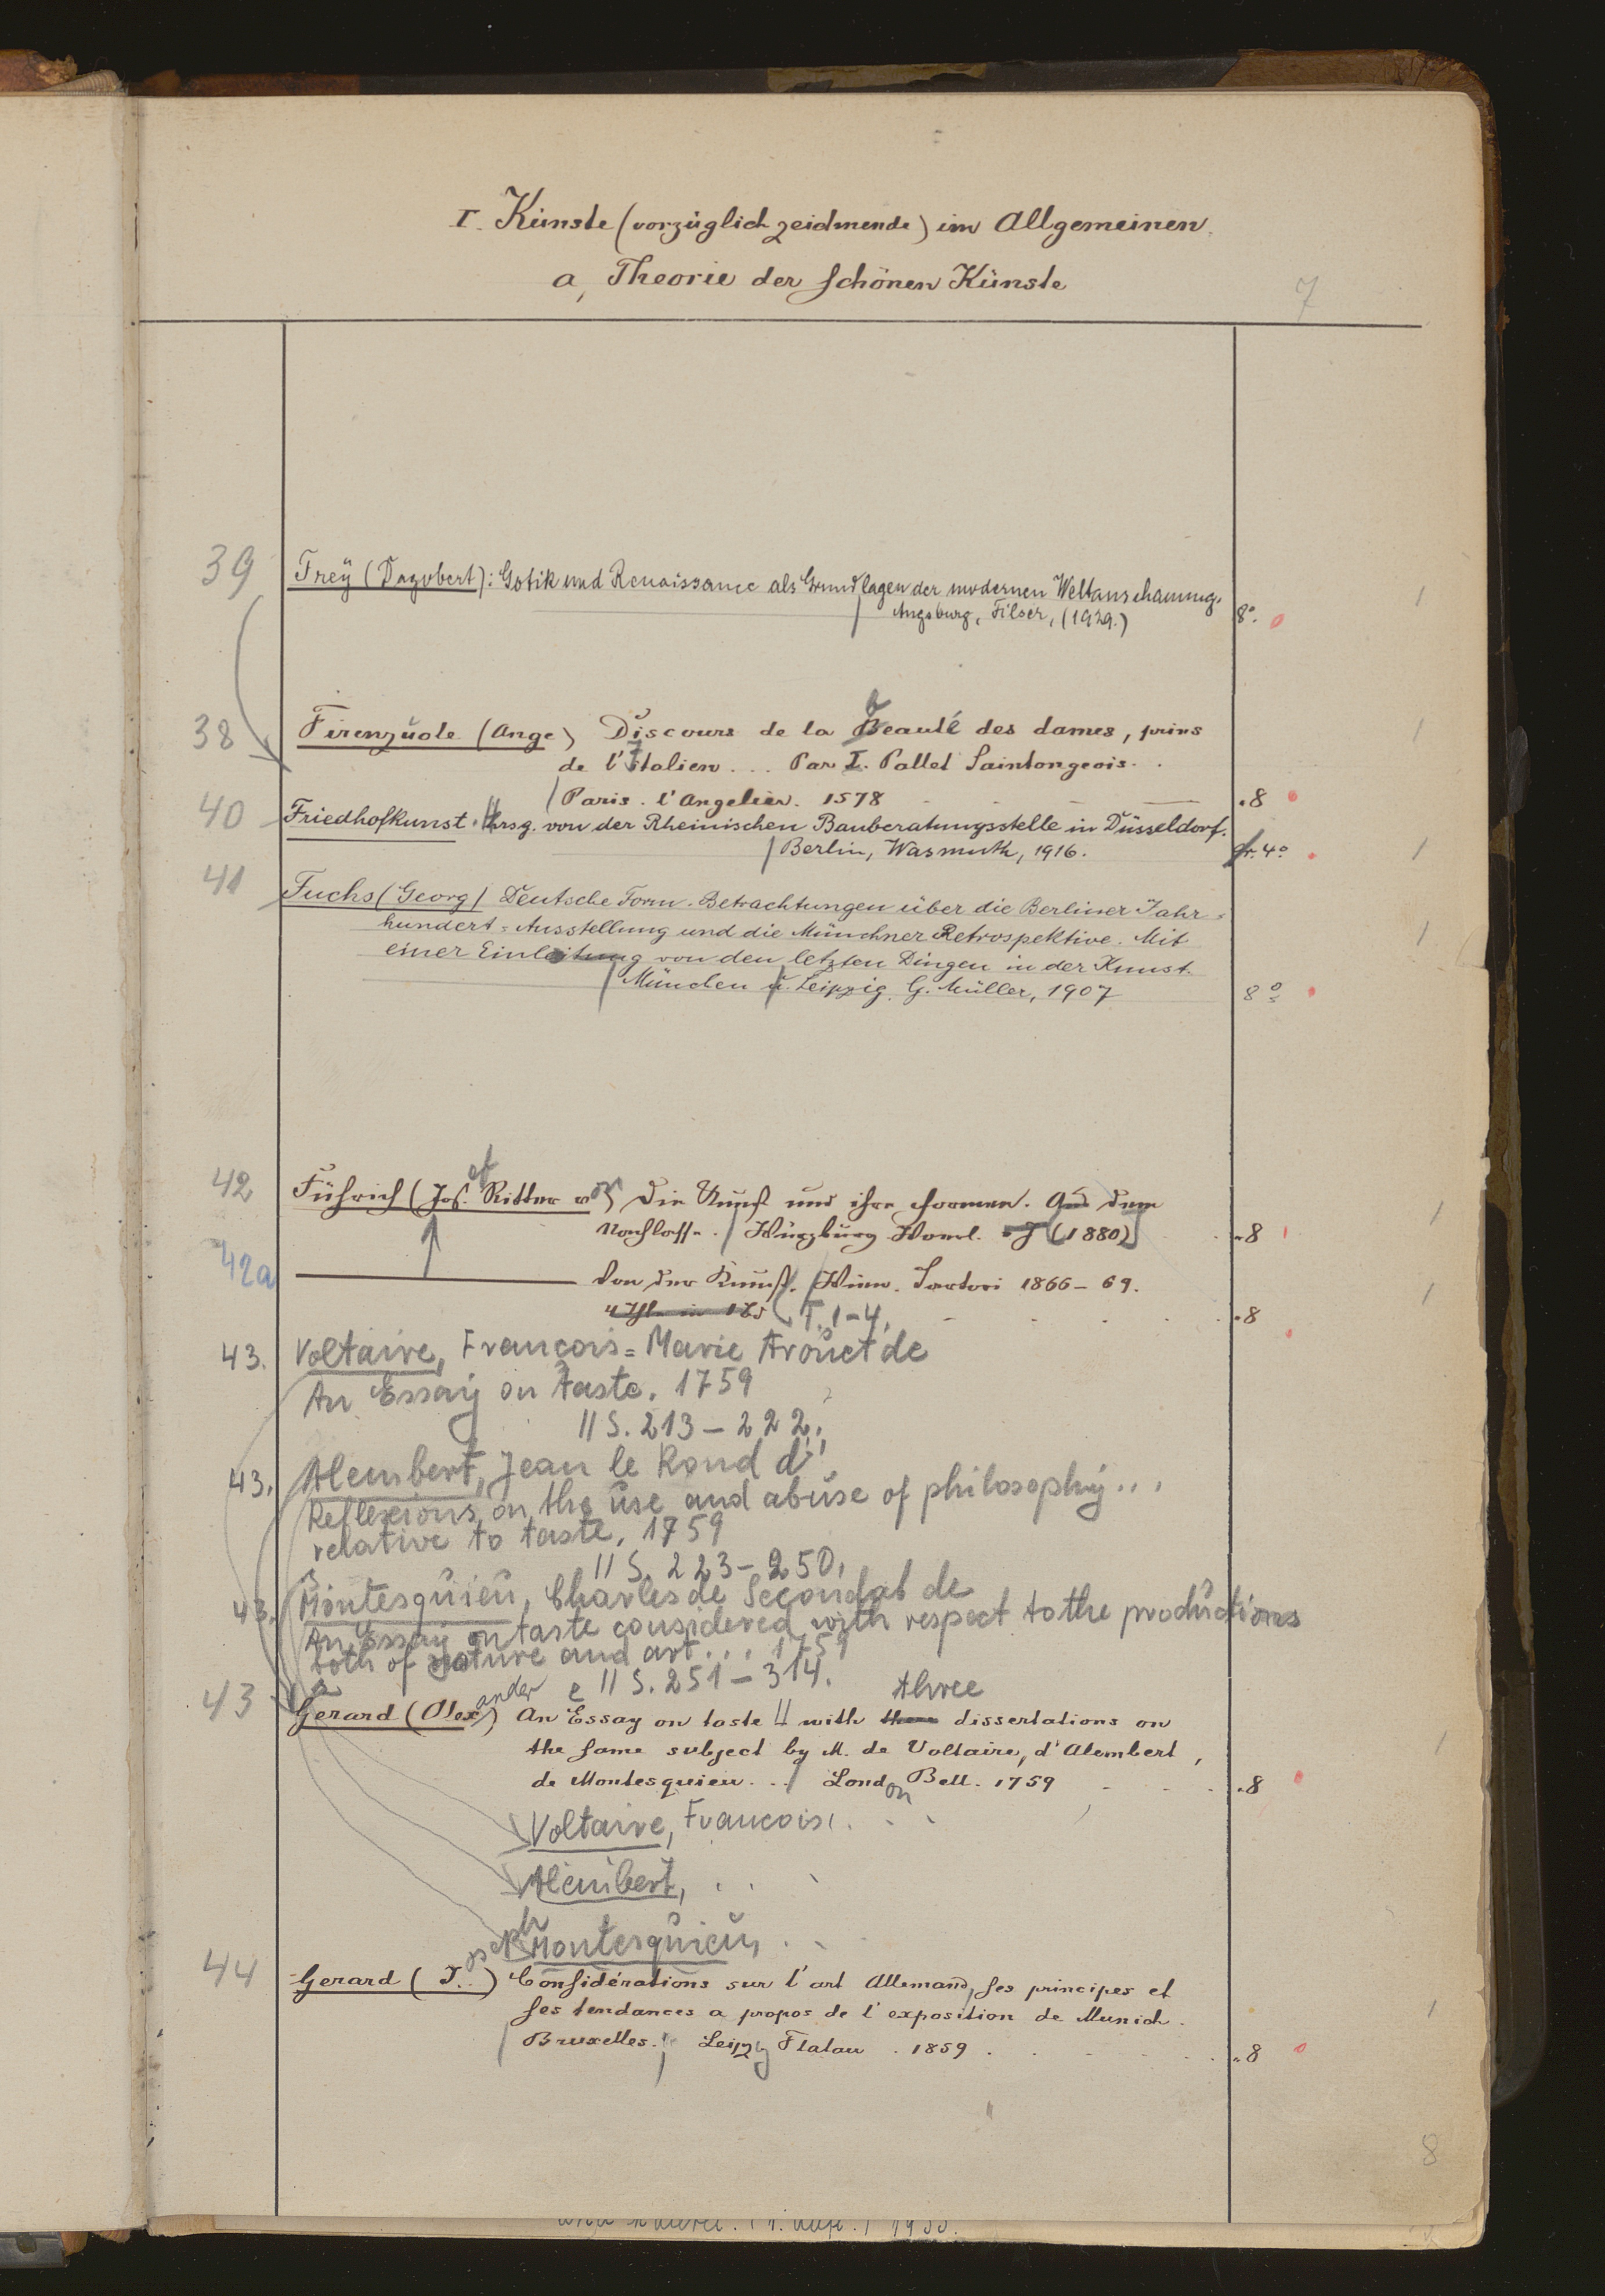 I. Künste (vorzüglich zeichnende) im Allgemeinen.
a, Theorie der schönen Künste
7
39 Frey (Dagobert): Gotik und Renaissance als Grundlagen der modernen Weltanschauung. 1
Augsburg, Filser, (1929.) 8°.
38 Firenzuole (Ange) Discours de la beauté des dames, prins 1
de l'Italien ... Par I. Pallet Saintongeois. .
Paris. l'Angelier. 1578 . 8
40 Friedhofkunst. Hrsg. von der Rheinischen Bauberatungsstelle in Düsseldorf.
Berlin, Wasmuth, 1916. gr. 4° 1
41 Fuchs (Georg) Deutsche Form. Betrachtungen über die Berliner Jahr=
hundert=Ausstellung und die Münchner Retrospektive. Mit 1
einer Einleitung von den letzten Dingen in der Kunst.
München u. Leipzig. G. Müller, 1907 8°
42 Führich (Jos.ef Ritter von) Die Kunst und ihre Formen. Aus dem 1
Nachlasse. Würzburg Woerl. (1880) . 8
42a ——— Von der Kunst. Wien. Sartori 1866–69. 1
T. 1–4. . 8
43. Voltaire, Francois=Marie Arouet de
An Essay on taste. 1759
// S. 213–222.
43. Alembert, Jean le Rond d'
Reflexions on the use and abuse of philosophy...
relative to taste. 1759
// S. 223–250.
43. Montesquieu, Charles de Secondat de
An Essay on taste considered with respect to the productions
both of nature and art... 1759
// S. 251–314.
three
43 Gerard (Alexander) An Essay on taste // with dissertations on
the same subject by M. de Voltaire, d'Alembert, 1
de Montesquieu... London Bell. 1759 . 8
Voltaire, Francois. . .
Alembert, . . .
Montesquieu, . .
44 Gerard (Joseph) Considérations sur l'art Allemand, ses principes et
ses tendances a propos de l'exposition de Munich. 1
Bruxelles. Leipzig Flatau . 1859 . 8
8